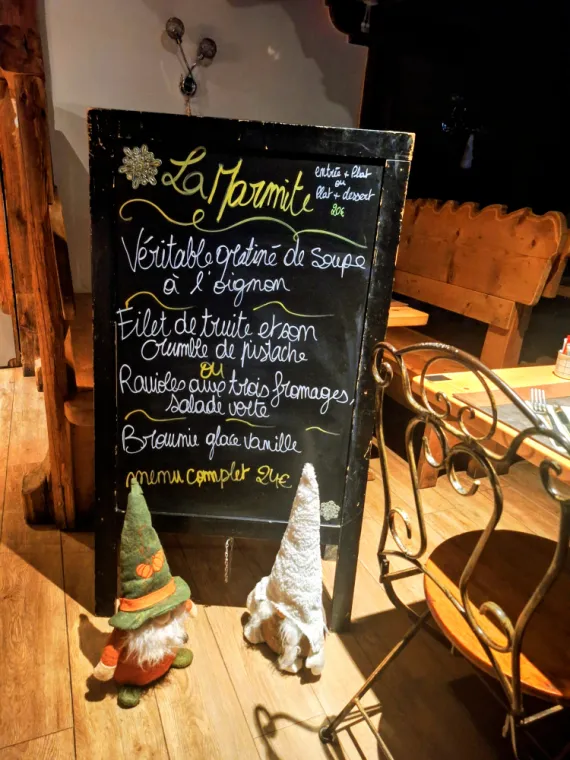 La Marmite
entrée + Plat
ou
Plat + dessert
20€
Véritable gratiné de soupe
à l'oignon
Filet de truite et son
crumble de pistache
ou
Ravioles aux trois fromages,
salade verte
Brownie glace vanille
menu complet 24€